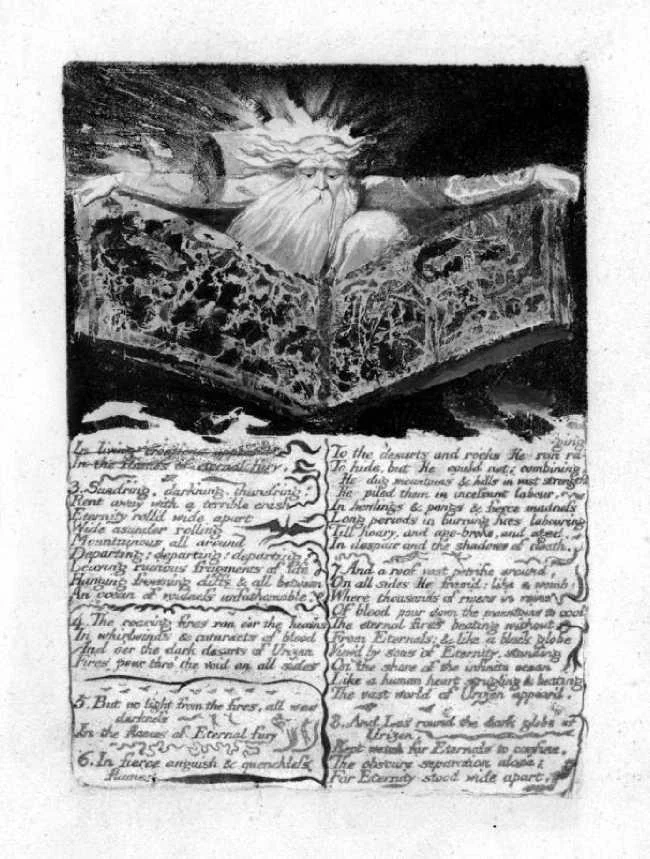 In living creations appear'd
In the flames of eternal fury.
3. Sundring, darkning, thundring!
Rent away with a terrible crash
Eternity rolld wide apart
Wide asunder rolling
Mountainous all around
Departing; departing; departing:
Leaving ruinous fragments of life
Hanging frowning cliffs & all between
An ocean of voidness unfathomable.
4. The roaring fires ran o'er the heav'ns
In whirlwinds & cataracts of blood
And o'er the dark desarts of Urizen
Fires pour thro' the void on all sides
5. But no light from the fires. all was
darkness
In the flames of Eternal fury
6. In fierce anguish & quenchless
flames
ging
To the desarts and rocks He ran ra-
To hide, but He could not: combining
He dug mountains & hills in vast strength
He piled them in incessant labour,
In howlings & pangs & fierce madness
Long periods in burning fires labouring
Till hoary, and age-broke, and aged,
In despair and the shadows of death.
7. And a roof vast petrific around,
On all sides He fram'd: like a womb;
Where thousands of rivers in veins
Of blood pour down the mountains to cool
The eternal fires beating without
From Eternals; & like a black globe
View'd by sons of Eternity, standing
On the shore of the infinite ocean
Like a human heart strugling & beating
The vast world of Urizen appear'd.
8. And Los round the dark globe of
Urizen,
Kept watch for Eternals to confine,
The obscure separation alone;
For Eternity stood wide apart,